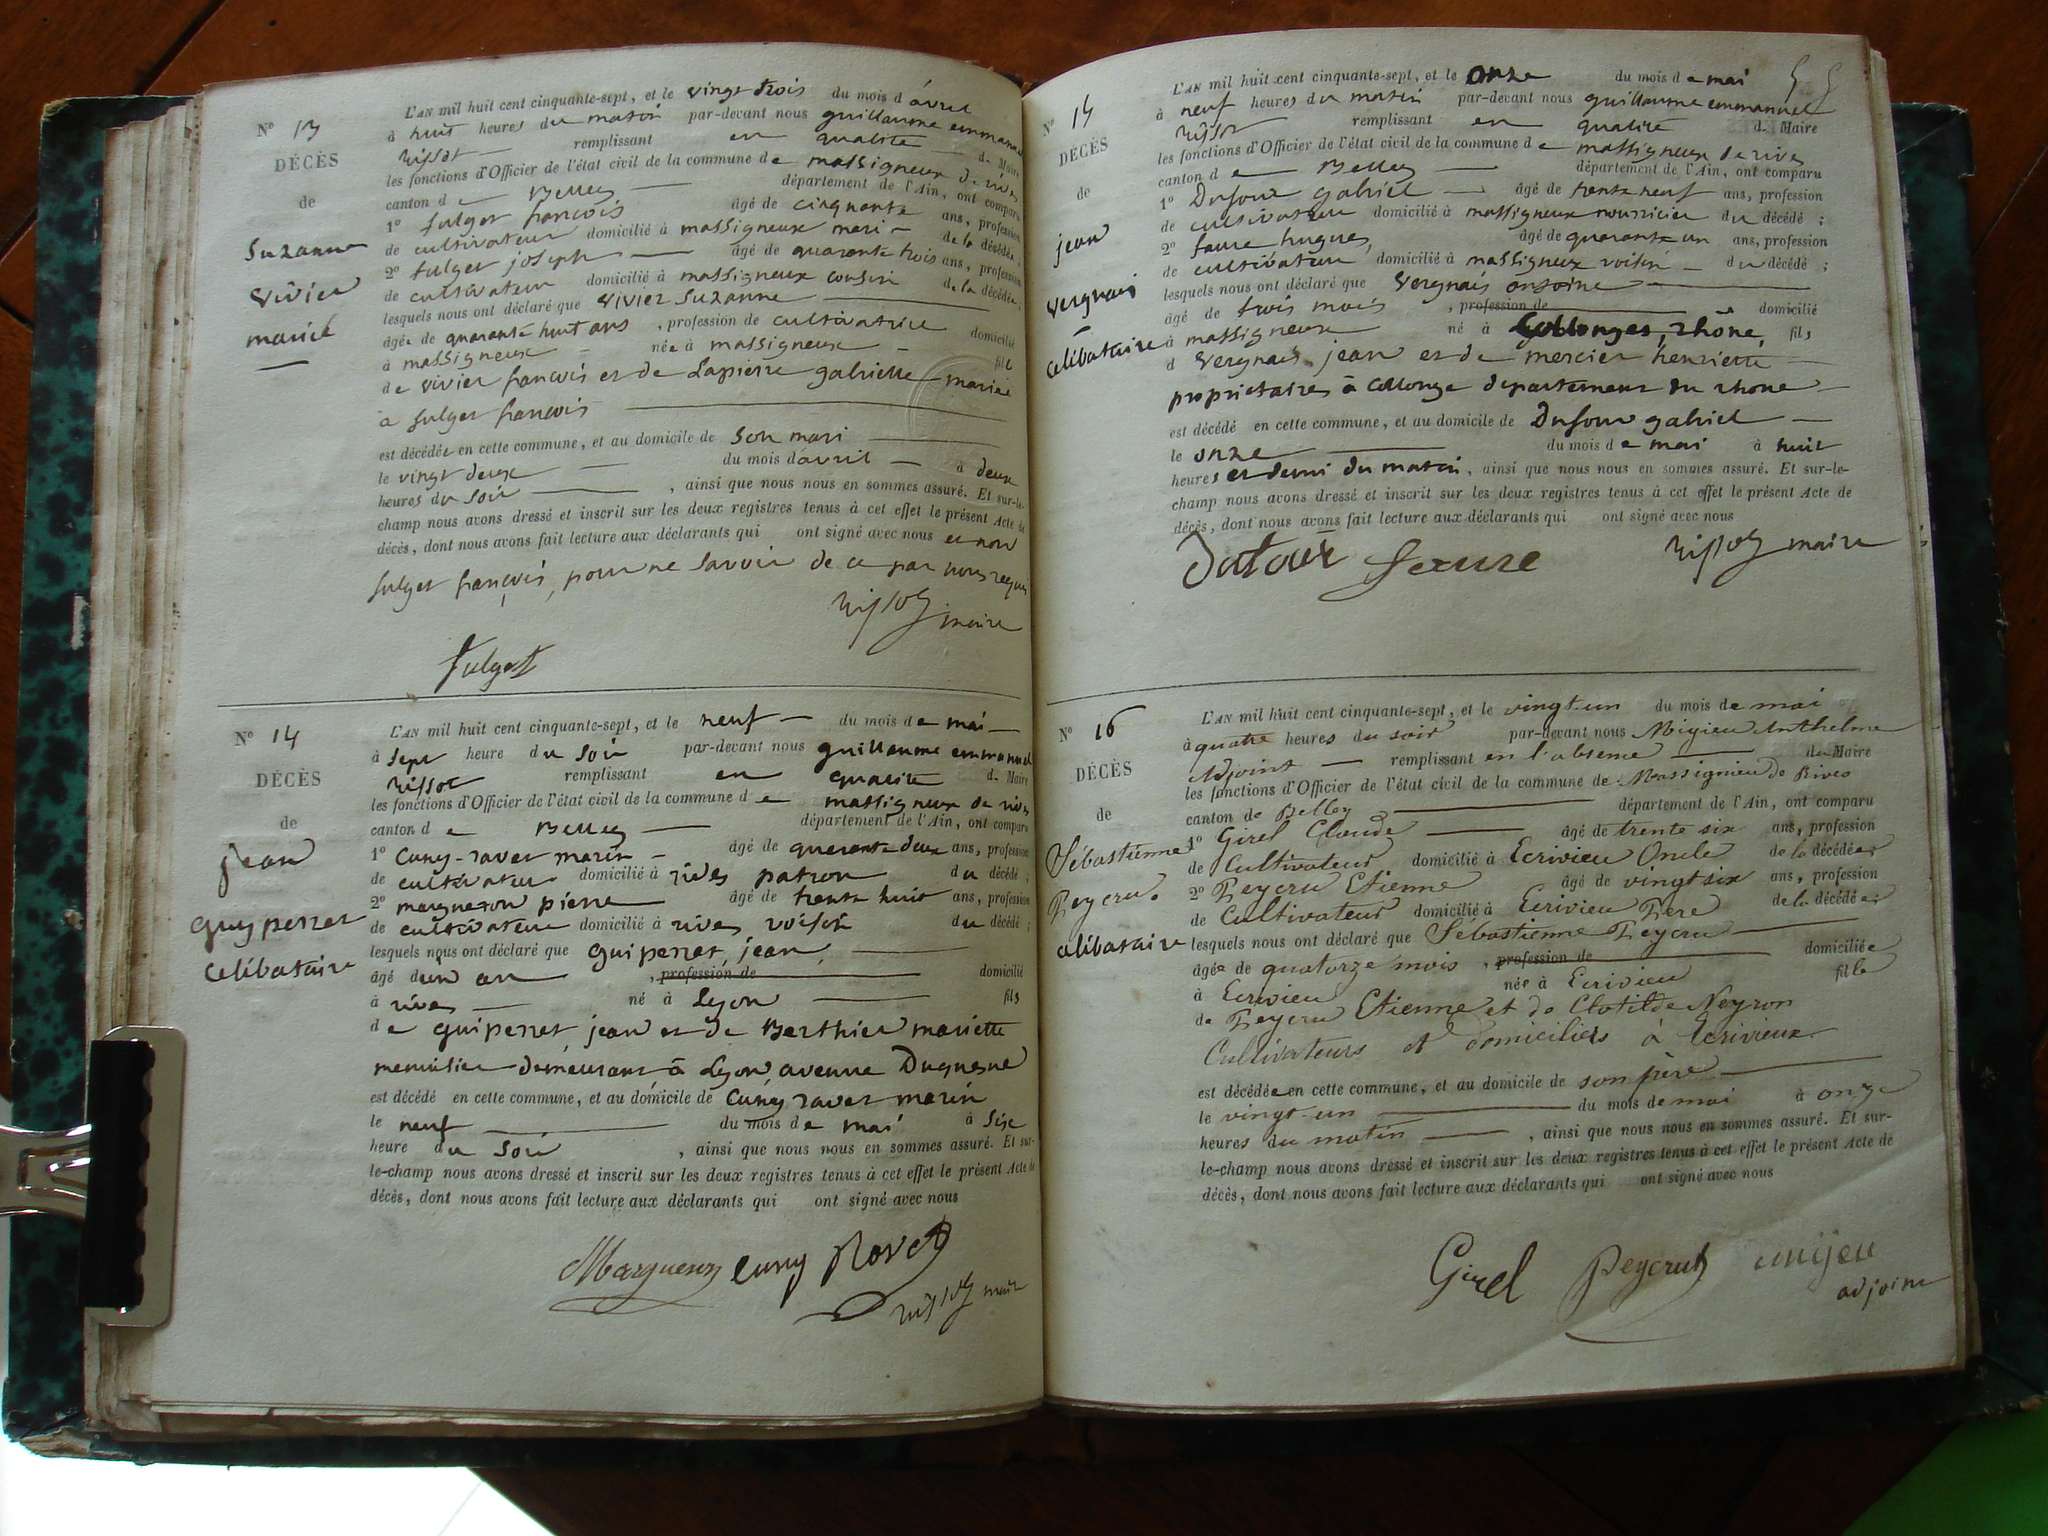 N° 13
DÉCÈS
de
Suzanne
vivier
mariée
L'AN mil huit cent cinquante-sept, et le vingt trois du mois d'avril
à huit heures du matin par-devant nous guillaume emmanuel
rissot remplissant en qualité de Maire
les fonctions d'Officier de l'état civil de la commune de massigneux de rives
canton de Belley département de l'Ain, ont comparu
1° fulget françois âgé de cinquante ans, profession
de cultivateur domicilié à massigneux mari de la décédée ;
2° fulget joseph âgé de quarante trois ans, profession
de cultivateur domicilié à massigneux cousin de la décédée ;
lesquels nous ont déclaré que vivier Suzanne
âgée de quarante huit ans , profession de cultivatrice domicilié
à massigneux née à massigneux fille
de vivier françois et de Lapierre gabrielle mariée
a fulget françois
est décédée en cette commune, et au domicile de son mari
le vingt deux du mois d'avril à deux
heures du soir , ainsi que nous nous en sommes assuré. Et sur-le-
champ nous avons dressé et inscrit sur les deux registres tenus à cet effet le présent Acte de
décès, dont nous avons fait lecture aux déclarants qui ont signé avec nous et non
fulget françois, pour ne savoir de ce par nous requis
rissot maire
fulget
N° 14
DÉCÈS
de
jean
guyperret
célibataire
L'AN mil huit cent cinquante-sept, et le neuf du mois de mai
à sept heure du soir par-devant nous guillaume emmanuel
rissot remplissant en qualité de Maire
les fonctions d'Officier de l'état civil de la commune de massigneux de rives
canton de Belley département de l'Ain, ont comparu
1° Cuny-ravet marin âgé de quarante deux ans, profession
de cultivateur domicilié à rives patron du décédé ;
2° margueron pierre âgé de trente huit ans, profession
de cultivateur domicilié à rives voisin du décédé ;
lesquels nous ont déclaré que guiperret, jean,
âgé d'un an , profession de domicilié
à rives né à Lyon fils
de guiperret, jean et de Berthier mariette
menuisier demeurant à Lyon avenue Duquesne
est décédé en cette commune, et au domicile de Cuny ravet marin
le neuf du mois de mai à six
heure du soir , ainsi que nous nous en sommes assuré. Et sur-
le-champ nous avons dressé et inscrit sur les deux registres tenus à cet effet le présent Acte de
décès, dont nous avons fait lecture aux déclarants qui ont signé avec nous
Margueron Cuny Ravet
rissot maire
55
N° 15
DÉCÈS
de
jean
vergnais
célibataire
L'AN mil huit cent cinquante-sept, et le onze du mois de mai
à neuf heures du matin par-devant nous guillaume emmanuel
rissot remplissant en qualité de Maire
les fonctions d'Officier de l'état civil de la commune de massigneux de rives
canton de Belley département de l'Ain, ont comparu
1° Dufour gabriel âgé de trente neuf ans, profession
de cultivateur domicilié à massigneux nourricier du décédé ;
2° faure hugues, âgé de quarante un ans, profession
de cultivateur domicilié à massigneux voisin du décédé ;
lesquels nous ont déclaré que vergnais antoine
âgé de trois mois , profession de domicilié
à massigneux né à Collonges, rhône, fils
d vergnais jean et de mercier henriette
propriétaires à Collonge département du rhône
est décédé en cette commune, et au domicile de Dufour gabriel
le onze du mois de mai à huit
heures et demi du matin, ainsi que nous nous en sommes assuré. Et sur-le-
champ nous avons dressé et inscrit sur les deux registres tenus à cet effet le présent Acte de
décès, dont nous avons fait lecture aux déclarants qui ont signé avec nous
Dufour faure rissot maire
N° 16
DÉCÈS
de
Sébastienne
Peycru.
célibataire
L'AN mil huit cent cinquante-sept, et le vingt-un du mois de mai
à quatre heures du soir par-devant nous Migieu Anthelme
Adjoint remplissant en l'absence du Maire
les fonctions d'Officier de l'état civil de la commune de Massignieu de Rives
canton de Belley département de l'Ain, ont comparu
1° Girel Claude âgé de trente six ans, profession
de Cultivateur domicilié à Ecrivieu Oncle de la décédée ;
2° Peycru Etienne âgé de vingt six ans, profession
de Cultivateur domicilié à Ecrivieu Père de la décédée ;
lesquels nous ont déclaré que Sébastienne Peycru
âgée de quatorze mois , profession de domiciliée
à Ecrivieu née à Ecrivieu fille
de Peycru Etienne et de Clotilde Neyron
Cultivateurs et domiciliés à Ecrivieux
est décédée en cette commune, et au domicile de son père
le vingt-un du mois de mai à onze
heures du matin , ainsi que nous nous en sommes assuré. Et sur-
le-champ nous avons dressé et inscrit sur les deux registres tenus à cet effet le présent Acte de
décès, dont nous avons fait lecture aux déclarants qui ont signé avec nous
Girel Peycru migieu
adjoint